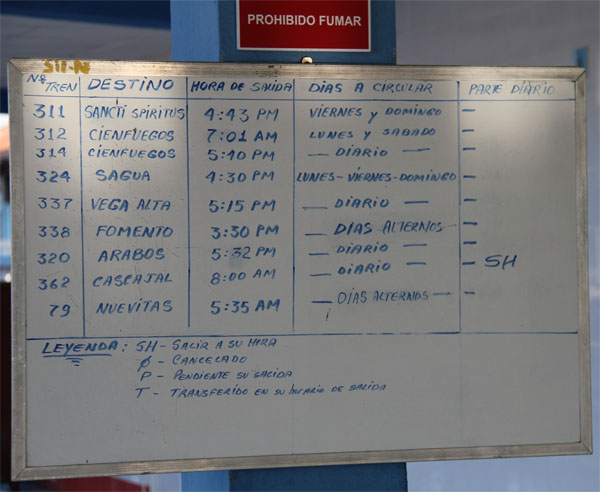 PROHIBIDO FUMAR
Nº TREN DESTINO HORA DE SALIDA DIAS A CIRCULAR PARTE DIARIO
311 SANCTI SPIRITUS 4:43 PM VIERNES y DOMINGO -
312 CIENFUEGOS 7:01 AM LUNES y SABADO -
314 CIENFUEGOS 5:40 PM - DIARIO - -
324 SAGUA 4:30 PM LUNES-VIERNES-DOMINGO -
337 VEGA ALTA 5:15 PM - DIARIO - -
338 FOMENTO 3:30 PM - DIAS ALTERNOS - -
320 ARABOS 5:32 PM - DIARIO - -
362 CASCAJAL 8:00 AM - DIARIO - - SH
79 NUEVITAS 5:35 AM - DIAS ALTERNOS - -
LEYENDA: SH - SALIR A SU HORA
Ø - CANCELADO
P - PENDIENTE SU SALIDA
T - TRANSFERIDO EN SU HORARIO DE SALIDA